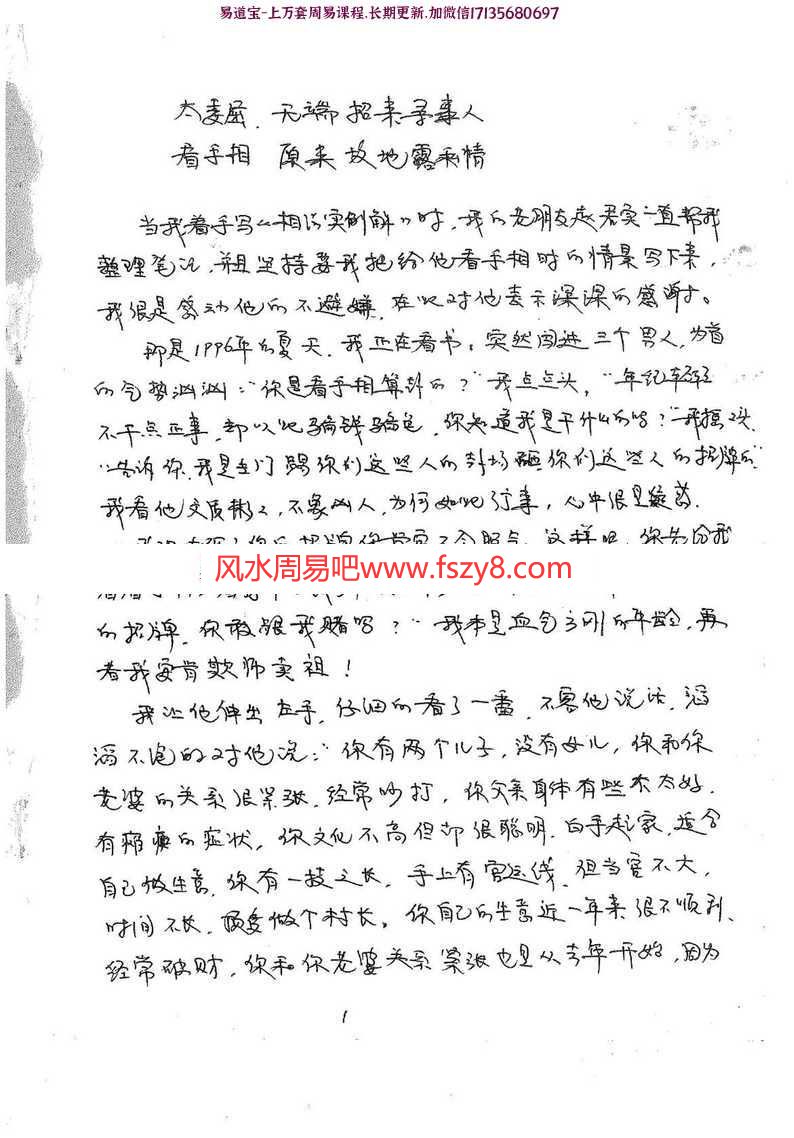 易道宝-上万套周易课程.长期更新.加微信17135680697
太委屈.无端招来寻事人
看手相 原来故地露私情
当我着手写《相法实例解》时,我的老朋友赵君实一直帮我
整理笔记,并且坚持要我把给他看手相时的情景写下来,
我很是感动他的不避嫌.在此对他表示深深的感谢.
那是1996年的夏天.我正在看书,突然闯进三个男人,为首
的气势汹汹:"你是看手相算卦的?"我点点头,"年纪轻轻
不干点正事,却以此骗钱骗色,你知道我是干什么的吗?"我摇头
"告诉你.我是专门踢你们这些人的卦场砸你们这些人的招牌的"
我看他文质彬彬,不象凶人,为何如此行事,心中很是疑惑.
这样吧,你先给我
风水周易吧www.fszy8.com
的招牌.你敢跟我赌吗?"我本是血气方刚的年龄,再
者我安肯欺师卖祖!
我让他伸出左手,仔细的看了一番,不容他说话,滔
滔不绝的对他说:"你有两个儿子,没有女儿,你和你
老婆的关系很紧张.经常吵打,你父亲身体有些不太好.
有瘫痪的症状,你文化不高但却很聪明.白手起家,适合
自己做生意.你有一技之长.手上有官运线.但当官不大,
时间不长,顶多做个村长.你自己的生意近一年来很不顺利、
经常破财,你和你老婆关系紧张也是从去年开始,因为
1